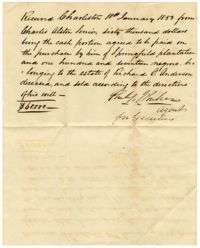 Received Charleston 18th January 1853 from
Charles Alston Senior sixty thousand dollars
being the cash portion agreed to be paid on
the purchase by him of Springfield plantation
and one hundred and seventeen negroes, be-
longing to the estate of Richard O. Anderson
deceased, and sold according to the directions
of his will —
$60000
agent
for Executors